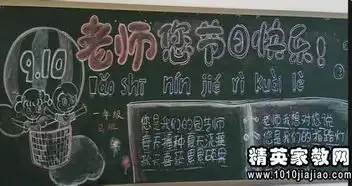 9.10
老师您节日快乐!
Lǎo shī nín jié rì kuài lè
一年级
2班
您是我们的园艺师
春天播种夏天浇灌
秋天喜获累累硕果
老师我想对您说
您是我们的指路灯
精英家教网
www.1010jiajiao.com